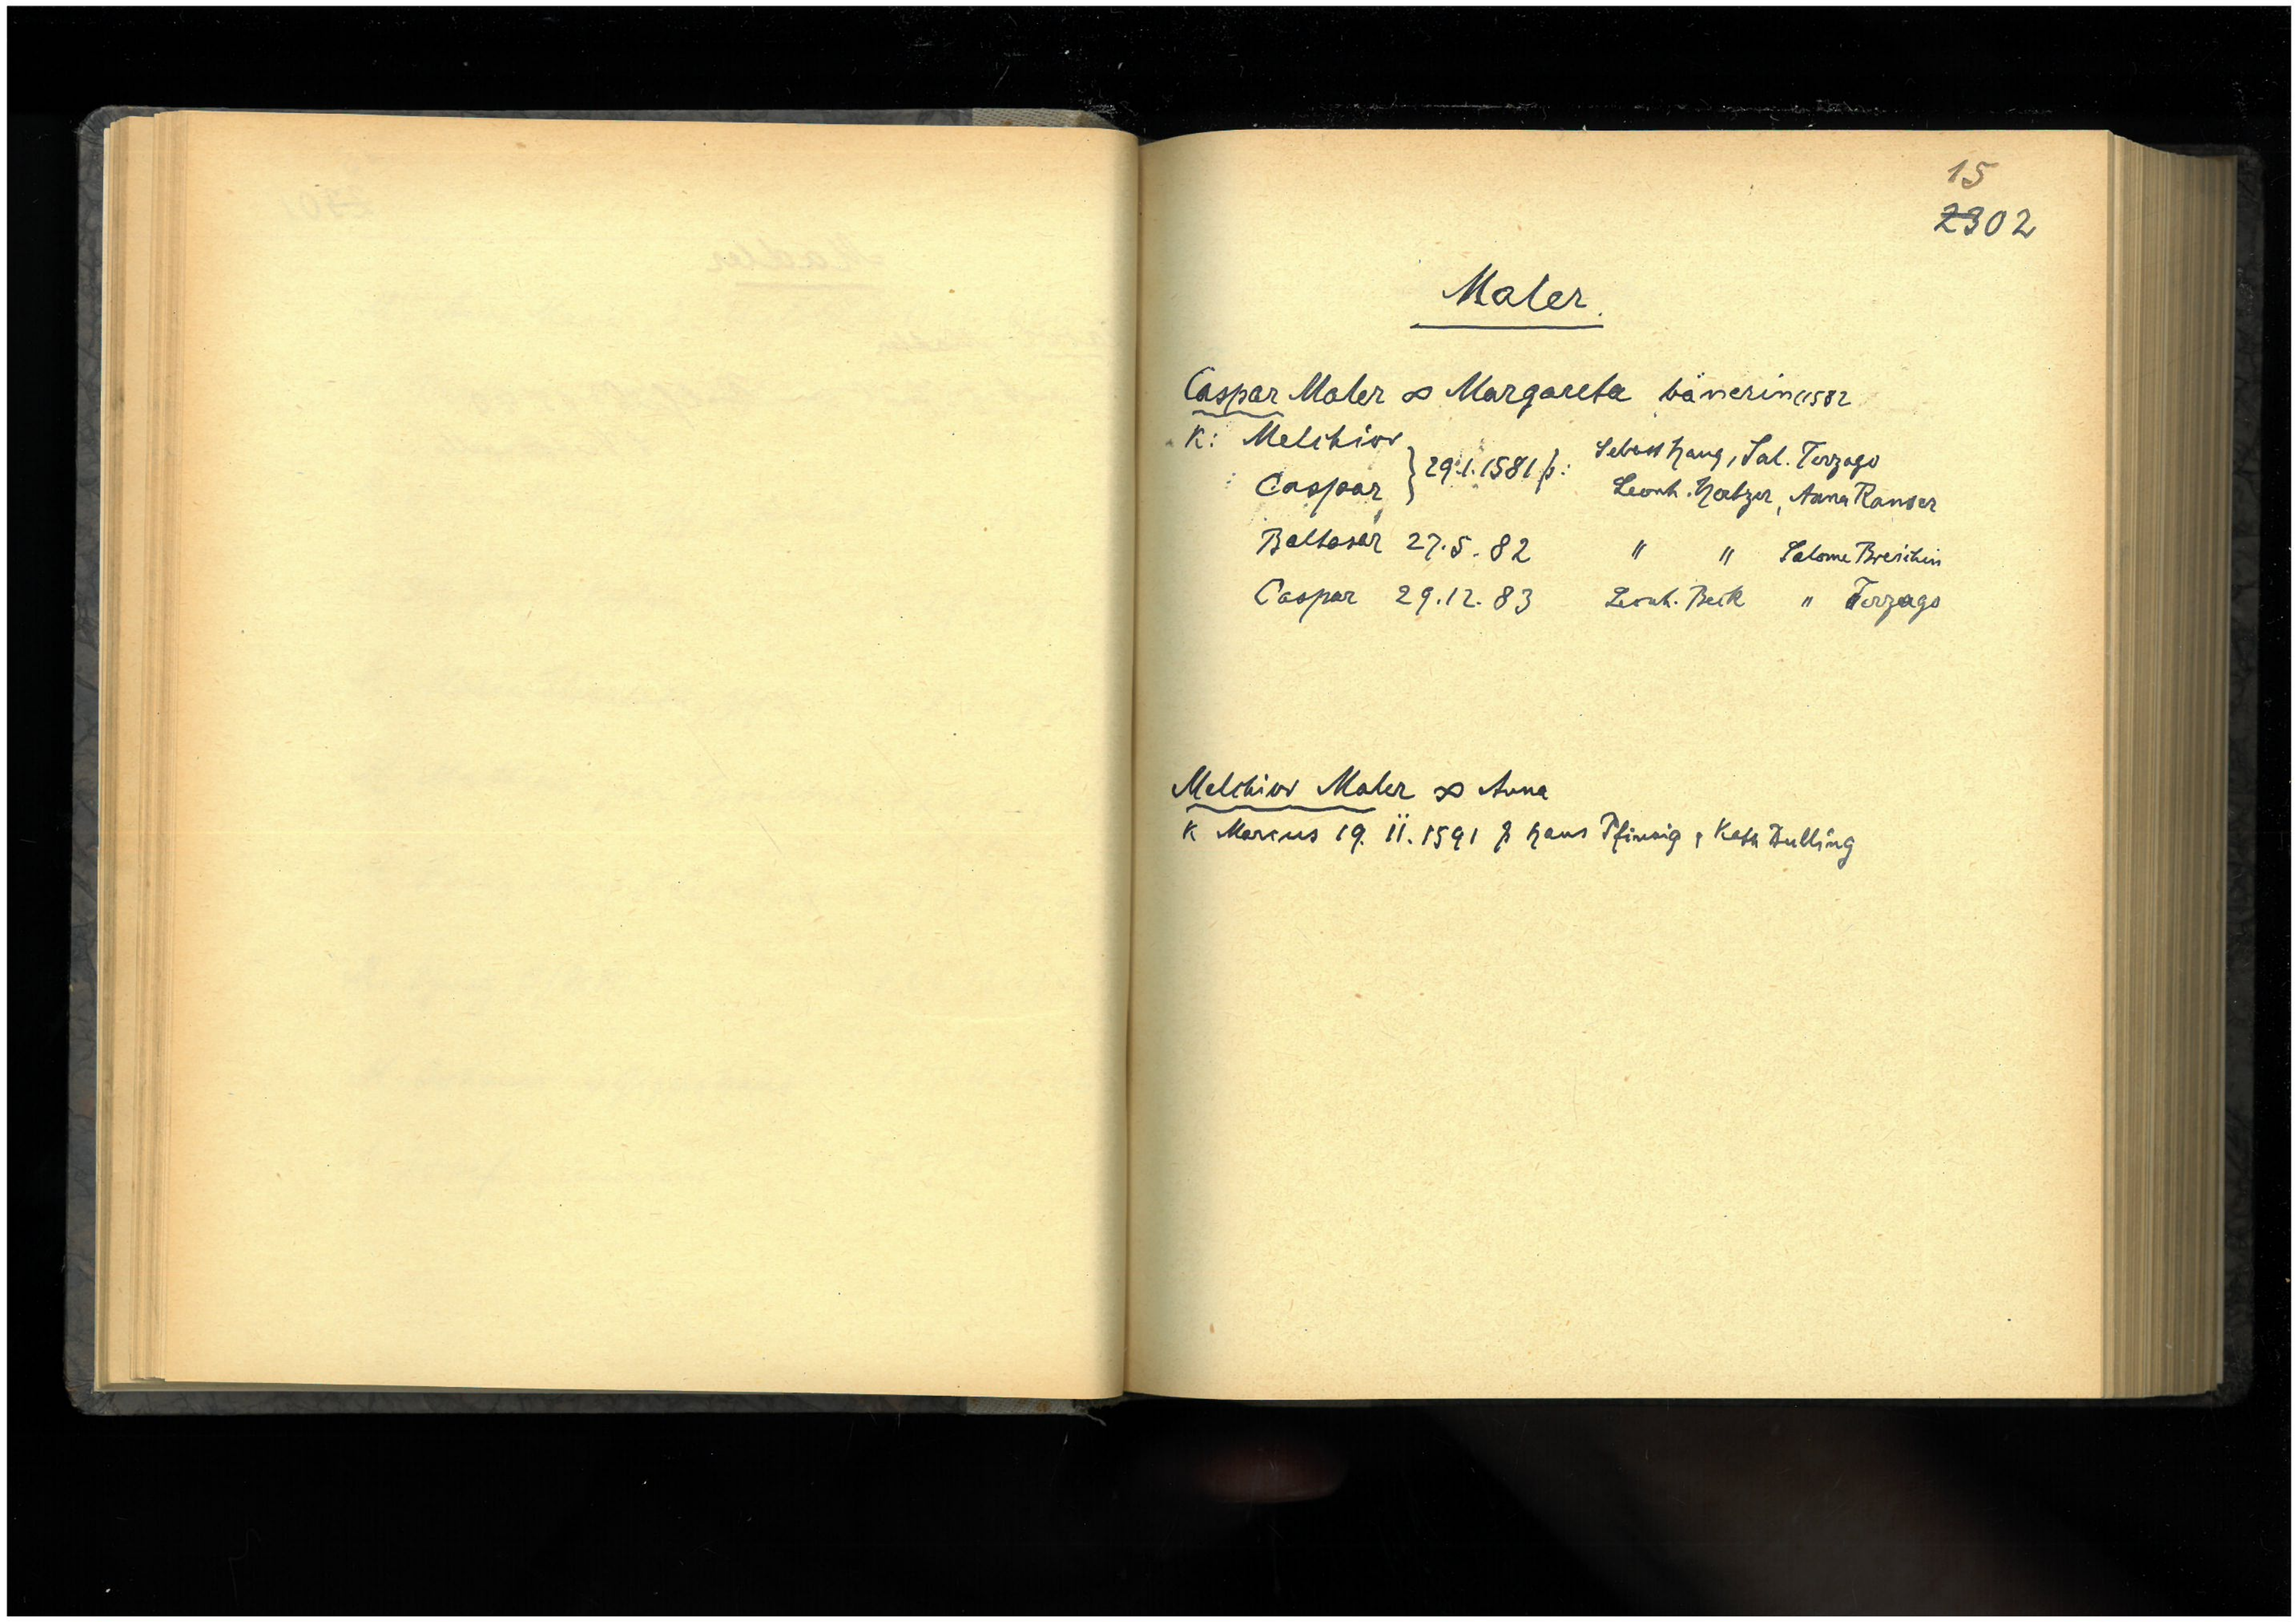 15
2302
Maler.
Caspar Maler ∞ Margareta bänerin 1582
K: Melchior
Caspar } 29.1.1581 p: Sebast Haug, Sal. Terzago
Leonh. Hertzer, Anna Ranser
Baltasar 27.5.82 " " Salome Breichin
Caspar 29.12.83 Leonh. Beck " Terzago
Melchior Maler ∞ Anna
K Marcus 19. II. 1591 p Hans Pfinzig, Kath Bulling